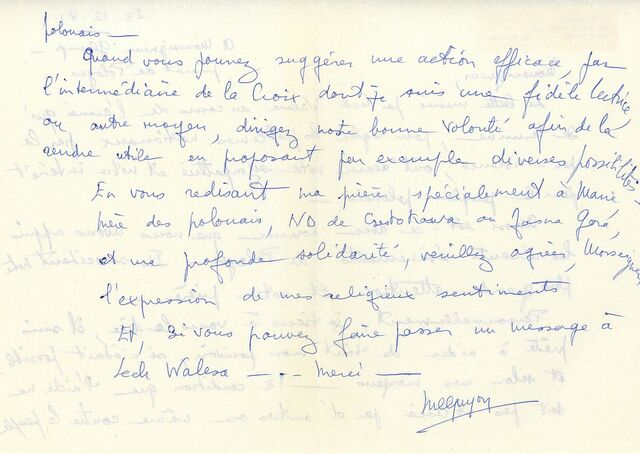 polonais —
Quand vous pouvez suggérer une action efficace, par
l'intermédiaire de la Croix dont je suis une fidèle lectrice
ou autre moyen, dirigez notre bonne volonté afin de la
rendre utile en proposant par exemple diverses possibilités —
En vous redisant ma prière spécialement à Marie
mère des polonais, ND de Czestokawa au Jasna Gora,
et ma profonde solidarité, veuillez agréer, Monseigneur
l'expression de mes religieux sentiments
Et, si vous pouvez faire passer un message à
Lech Walesa — .. Merci —